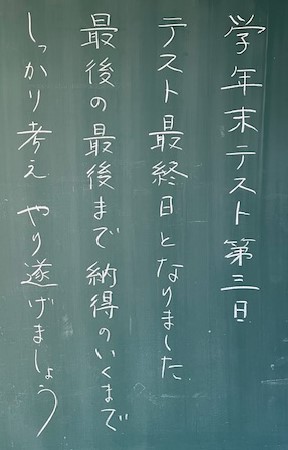 学年末テスト第三日
テスト最終日となりました
最後の最後まで納得のいくまで
しっかり考え やり遂げましょう